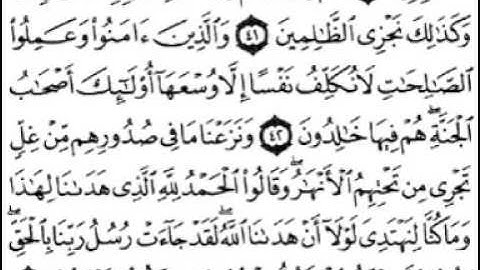 وَكَذَٰلِكَ نَجْزِى الظَّـٰلِمِينَ ٤١ وَالَّذِينَ ءَامَنُوا۟ وَعَمِلُوا۟
الصَّـٰلِحَـٰتِ لَا نُكَلِّفُ نَفْسًا إِلَّا وُسْعَهَآ أُو۟لَـٰٓئِكَ أَصْحَـٰبُ
الْجَنَّةِ ۖ هُمْ فِيهَا خَـٰلِدُونَ ٤٢ وَنَزَعْنَا مَا فِى صُدُورِهِم مِّنْ غِلٍّ
تَجْرِى مِن تَحْتِهِمُ الْأَنْهَـٰرُ ۖ وَقَالُوا۟ الْحَمْدُ لِلَّهِ الَّذِى هَدَىٰنَا لِهَـٰذَا
وَمَا كُنَّا لِنَهْتَدِىَ لَوْلَآ أَنْ هَدَىٰنَا اللَّهُ ۖ لَقَدْ جَآءَتْ رُسُلُ رَبِّنَا بِالْحَقِّ ۖ